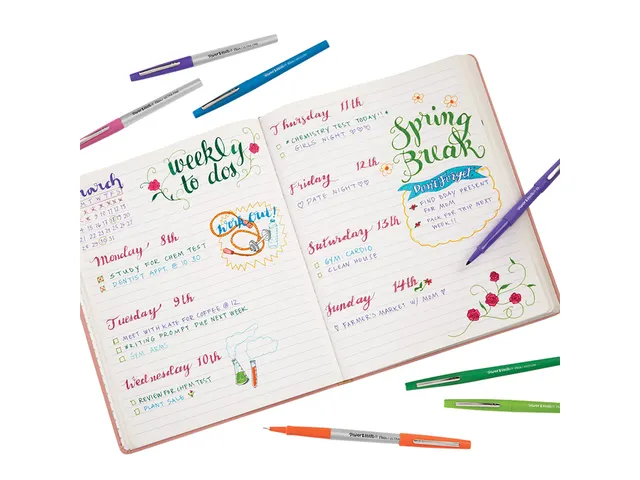 Paper Mate
Paper Mate
Paper Mate
march
weekly
to dos
Monday 8th
STUDY FOR CHEM TEST
DENTIST APPT. @ 10:30
work out!
Tuesday 9th
MEET WITH KATE FOR COFFEE @ 12
WRITING PROMPT DUE NEXT WEEK
GYM ARMS
Wednesday 10th
REVIEW FOR CHEM TEST
PLANT SALE
Thursday 11th
*CHEMISTRY TEST TODAY!!*
GIRLS NIGHT ♡♡♡
Friday 12th
♡ DATE NIGHT ♡♡
Saturday 13th
GYM CARDIO
CLEAN HOUSE
Sunday 14th
♡ FARMER'S MARKET W/ MOM ♡
Spring
Break
Don't Forget
FIND BDAY PRESENT
FOR MOM
PACK FOR TRIP NEXT
WEEK!!
Paper Mate
Paper Mate
Paper Mate